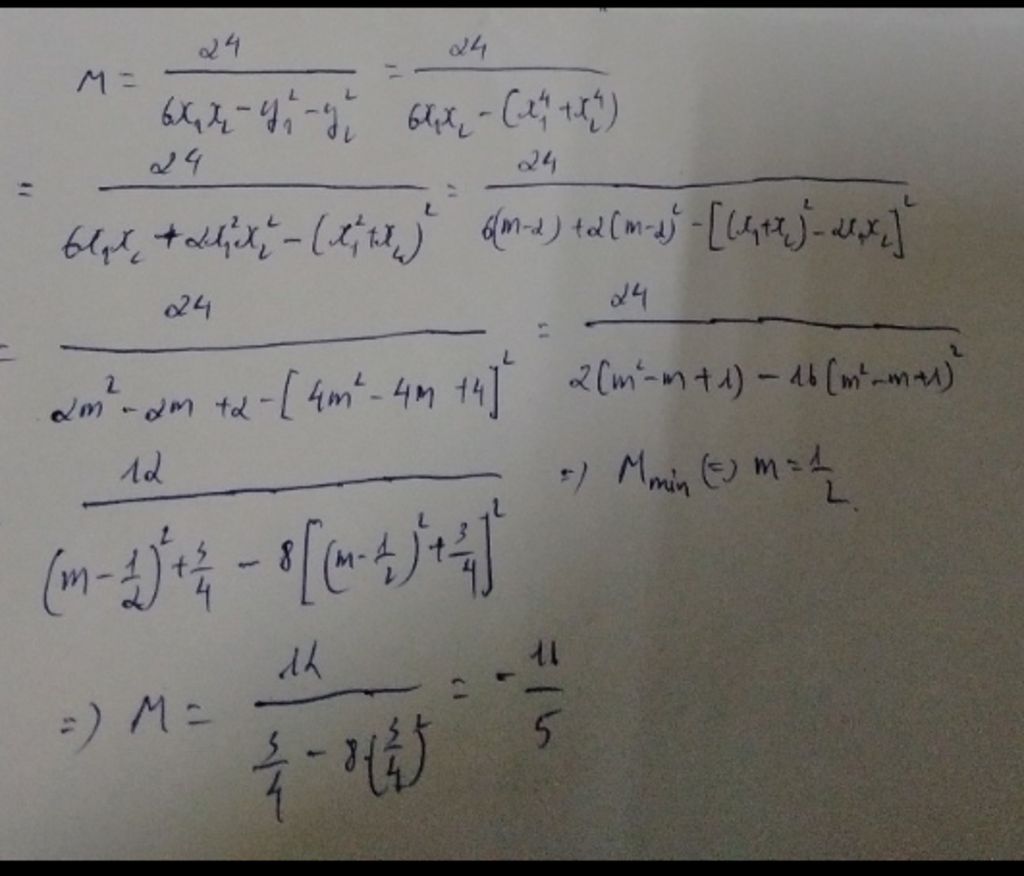 M = 24 / (6x₁x₂ - y₁² - y₂²) = 24 / (6x₁x₂ - (x₁⁴ + x₂⁴))
= 24 / (6x₁x₂ + 2x₁²x₂² - (x₁² + x₂)²) = 24 / (6(m-2) + 2(m-2)² - [(x₁+x₂)² - 2x₁x₂]²)
= 24 / (2m² - 2m + 2 - [4m² - 4m + 4]²) = 24 / (2(m² - m + 1) - 16(m² - m + 1)²)
12 / ((m - 1/2)² + 3/4 - 8[(m - 1/2)² + 3/4]²) => M min (=) m = 1/2.
=) M = 12 / (3/4 - 8(3/4)²) = - 16/5